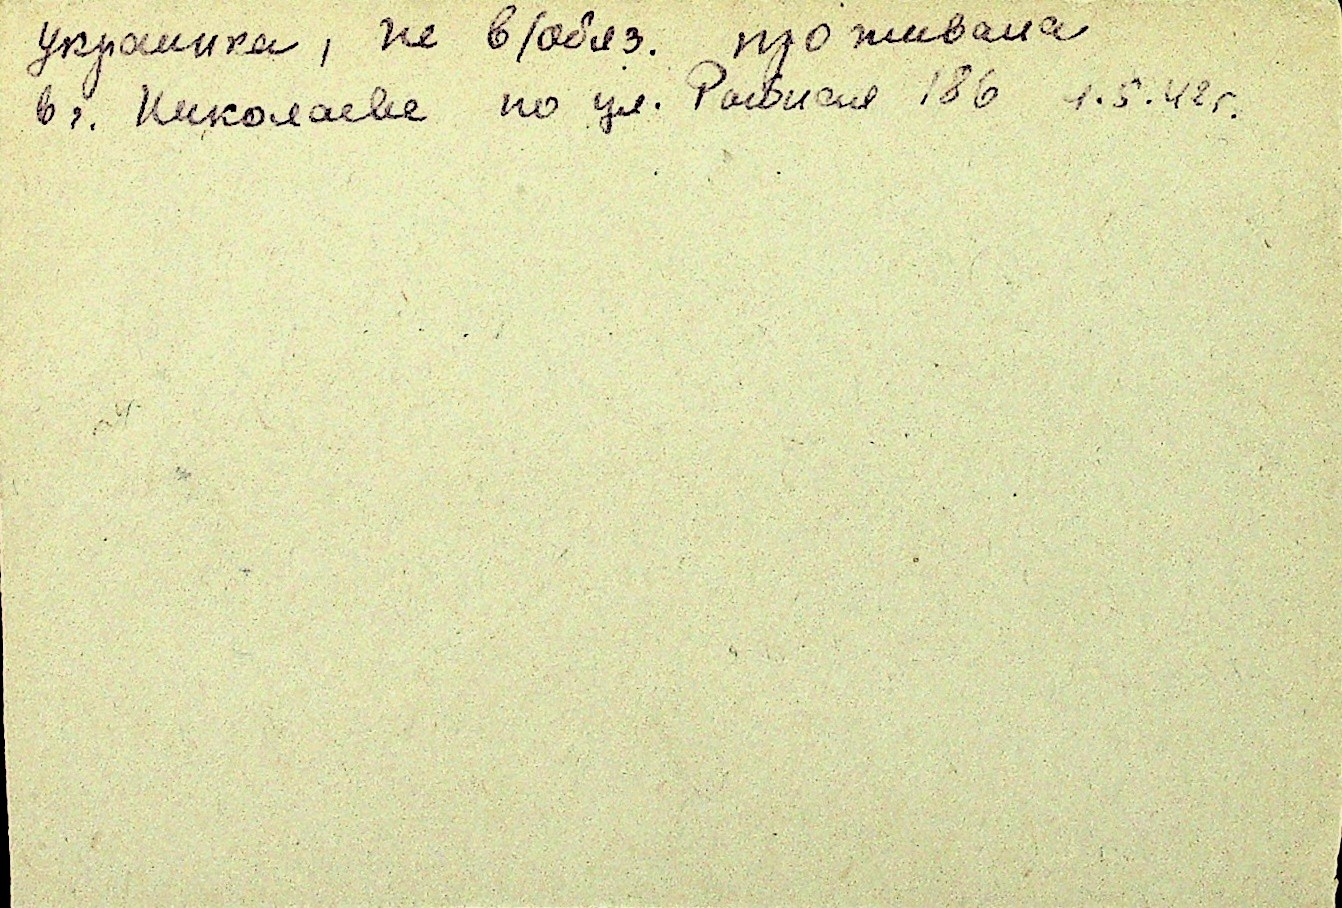 украинка, не в/обяз. проживала
в г. Николаеве по ул. 186 1.5.42 г.